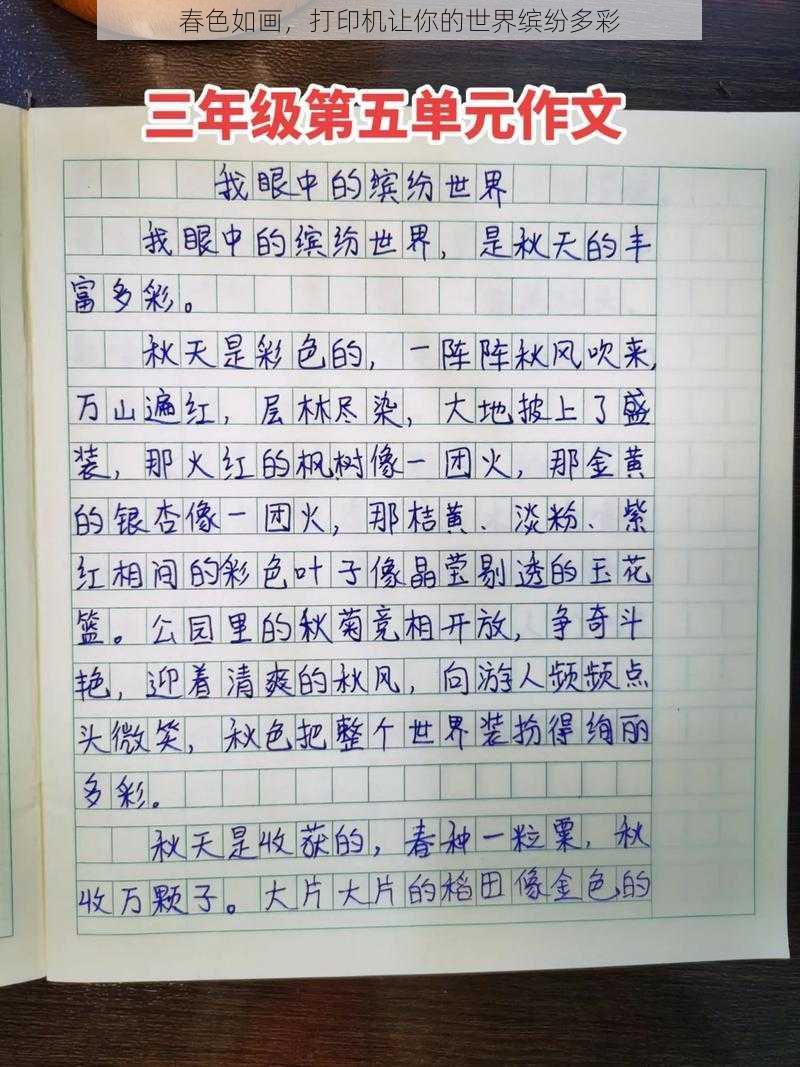 春色如画，打印机让你的世界缤纷多彩
三年级第五单元作文
我眼中的缤纷世界
我眼中的缤纷世界，是秋天的丰
富多彩。
秋天是彩色的，一阵阵秋风吹来，
万山遍红，层林尽染，大地披上了盛
装，那火红的枫树像一团火，那金黄
的银杏像一团火，那桔黄、淡粉、紫
红相间的彩色叶子像晶莹剔透的玉花
篮。公园里的秋菊竞相开放，争奇斗
艳，迎着清爽的秋风，向游人频频点
头微笑，秋色把整个世界装扮得绚丽
多彩。
秋天是收获的，春种一粒粟，秋
收万颗子。大片大片的稻田像金色的